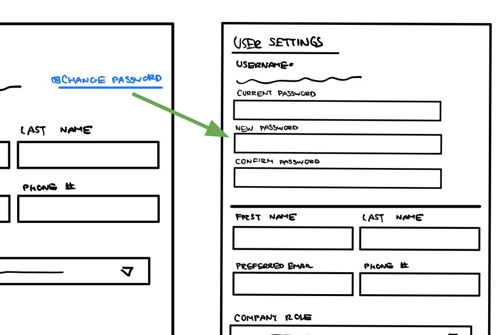 CHANGE PASSWORD
LAST NAME
PHONE #
USER SETTINGS
USERNAME*
CURRENT PASSWORD
NEW PASSWORD
CONFIRM PASSWORD
FIRST NAME LAST NAME
PREFERRED EMAIL PHONE #
COMPANY ROLE